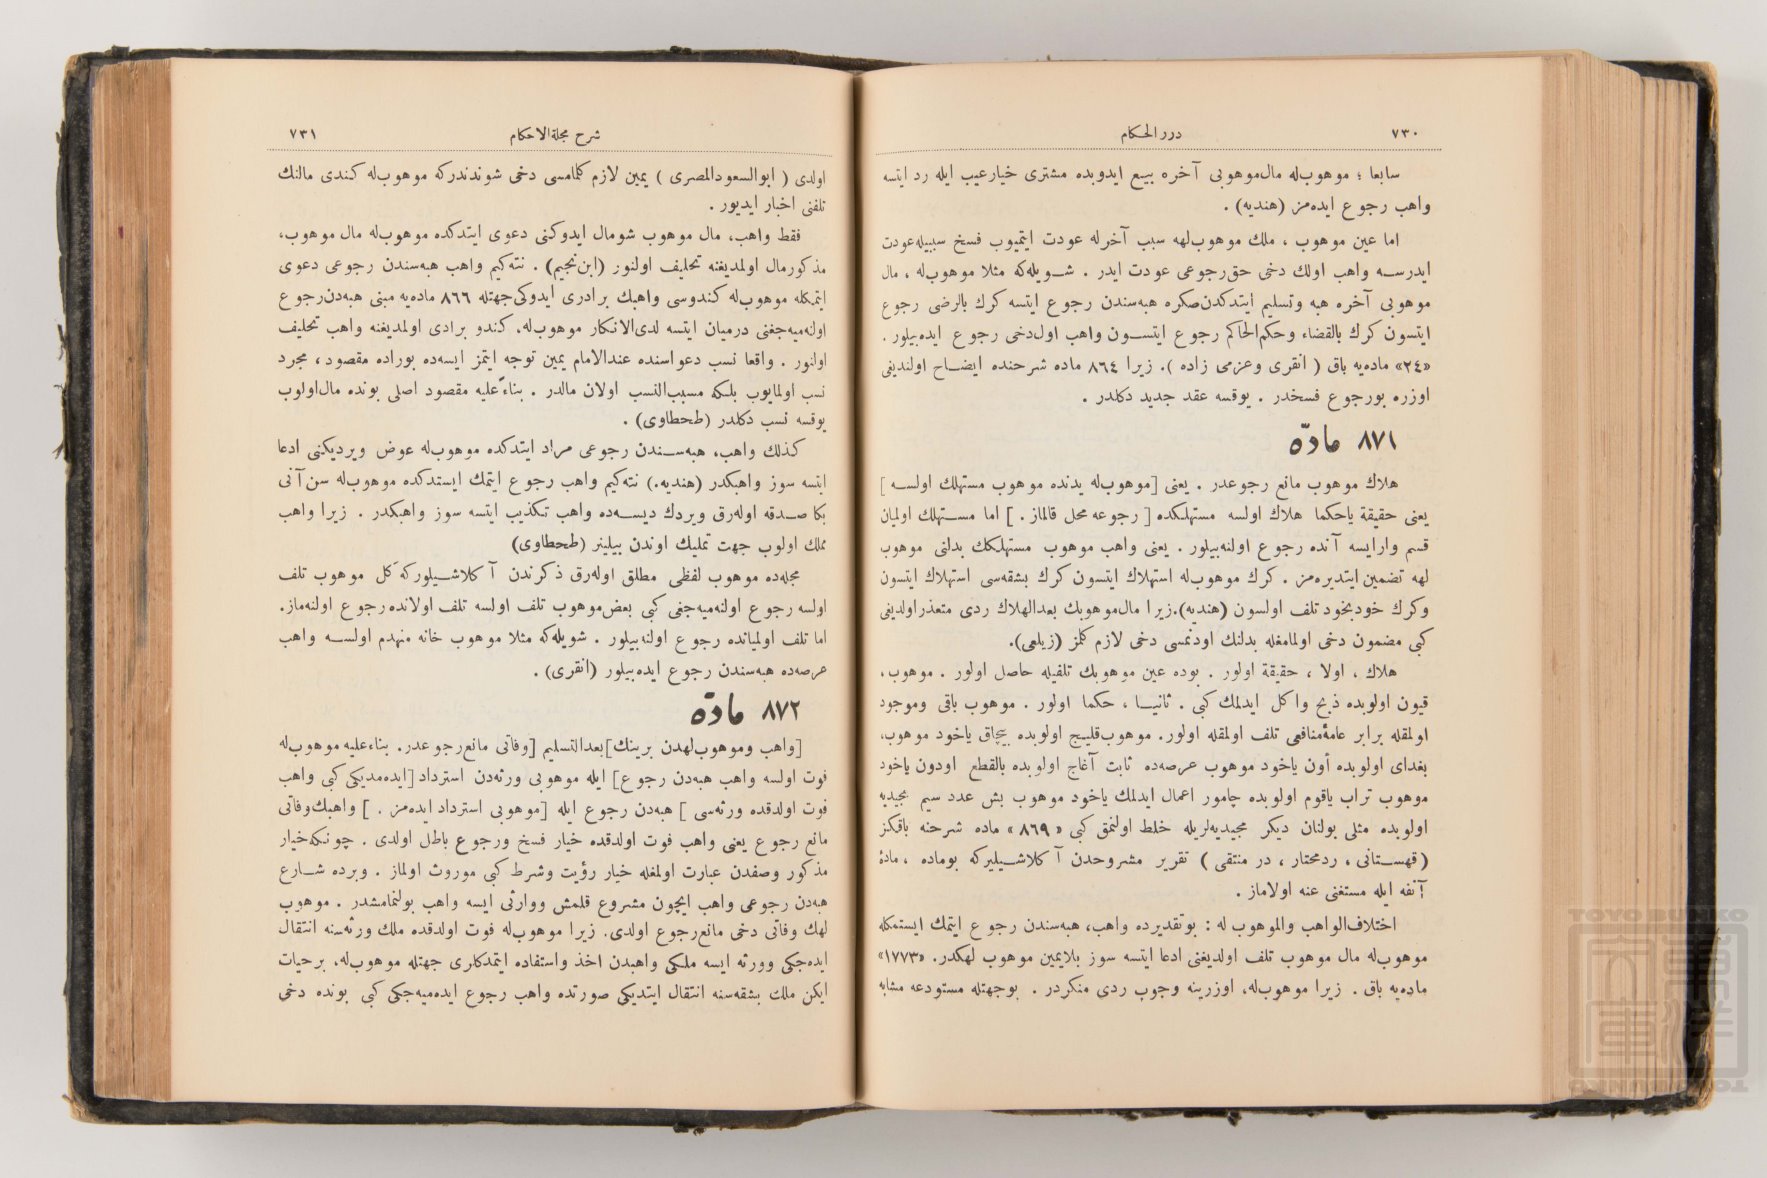 ٧٣٠
درر الحكام
سابعا ؛ موهوب‌له مال‌موهوبى آخره بيع ايدوبده مشترى خيارعيب ايله رد ايتسه
واهب رجوع ايده‌مز (هنديه) .
اما عين موهوب ، ملك موهوب‌لهه سبب آخرله عودت ايتميوب فسخ سببيله‌عودت
ايدرسه واهب اولك دخى حق‌رجوعى عودت ايدر . شويله‌كه مثلا موهوب‌له ، مال
موهوبى آخره هبه وتسليم ايتدكدن‌صكره هبه‌سندن رجوع ايتسه كرك بالرضى رجوع
ايتسون كرك بالقضاء وحكم‌الحاكم رجوع ايتسون واهب اول‌دخى رجوع ايده‌بيلور .
«٢٤» ماده‌يه باق ( انقرى وعزمى زاده ). زيرا ٨٦٤ ماده شرحنده ايضاح اولنديغى
اوزره بورجوع فسخدر . يوقسه عقد جديد دكلدر .
٨٧١ مادّه
هلاك موهوب مانع رجوعدر . يعنى [موهوب‌له يدنده موهوب مستهلك اولسه ]
يعنى حقيقة ياحكما هلاك اولسه مستهلكده [ رجوعه محل قالماز . ] اما مستهلك اوليان
قسم وارايسه آنده رجوع اولنه‌بيلور . يعنى واهب موهوب مستهلكك بدلنى موهوب
لهه تضمين ايتديره‌مز . كرك موهوب‌له استهلاك ايتسون كرك بشقه‌سى استهلاك ايتسون
وكرك خودبخود تلف اولسون (هنديه).زيرا مال‌موهوبك بعدالهلاك ردى متعذراولديغى
كبى مضمون دخى اولمامغله بدلنك اودنمسى دخى لازم كلمز (زيلعى).
هلاك ، اولا ، حقيقة اولور . بوده عين موهوبك تلفيله حاصل اولور . موهوب،
قيون اولوبده ذبح واكل ايدلمك كبى . ثانيا ، حكما اولور . موهوب باقى وموجود
اولمقله برابر عامۀمنافعى تلف اولمقله اولور. موهوب‌قليج اولوبده بيچاق ياخود موهوب،
بغداى اولوبده أون ياخود موهوب عرصه‌ده ثابت آغاج اولوبده بالقطع اودون ياخود
موهوب تراب ياقوم اولوبده چامور اعمال ايدلمك ياخود موهوب بش عدد سيم مجيديه
اولوبده مثلى بولنان ديكر مجيديه‌لريله خلط اولنمق كبى « ٨٦٩ » ماده شرحنه باقكز
(قهستانى ، ردمحتار ، در منتقى ) تقرير مشروحدن آكلاشيليركه بوماده ، مادۀ
آنفه ايله مستغنى عنه اولاماز .
اختلاف‌الواهب والموهوب له : بوتقديرده واهب، هبه‌سندن رجوع ايتمك ايستمكله
موهوب‌له مال موهوب تلف اولديغنى ادعا ايتسه سوز بلايمين موهوب لهكدر. «١٧٧٣»
ماده‌يه باق . زيرا موهوب‌له، اوزرينه وجوب ردى منكردر . بوجهتله مستودعه مشابه
شرح مجلة‌الاحكام
٧٣١
اولدى ( ابوالسعودالمصرى ) يمين لازم كلمامسى دخى شوندندركه موهوب‌له كندى مالنك
تلفنى اخبار ايديور .
فقط واهب، مال موهوب شومال ايدوكنى دعوى ايتدكده موهوب‌له مال موهوب،
مذكورمال اولمديغنه تحليف اولنور (ابن‌نجيم) . نته‌كيم واهب هبه‌سندن رجوعى دعوى
ايتمكله موهوب‌له كندوسى واهبك برادرى ايدوكى‌جهتله ٨٦٦ ماده‌يه مبنى هبه‌دن‌رجوع
اوله‌ميه‌جغنى درميان ايتسه لدى‌الانكار موهوب‌له، كندو برادى اولمديغنه واهب تحليف
اولنور . واقعا نسب دعواسنده عندالامام يمين توجه ايتمز ايسه‌ده بوراده مقصود ، مجرد
نسب اولمايوب بلكه مسبب‌النسب اولان مالدر . بناءً عليه مقصود اصلى بونده مال‌اولوب
يوقسه نسب دكلدر (طحطاوى) .
كذلك واهب، هبه‌سندن رجوعى مراد ايتدكده موهوب‌له عوض ويرديكنى ادعا
ايتسه سوز واهبكدر (هنديه.) نته‌كيم واهب رجوع ايتمك ايستدكده موهوب‌له سن‌آنى
بكا صدقه اوله‌رق ويردك ديسه‌ده واهب تكذيب ايتسه سوز واهبكدر . زيرا واهب
مملك اولوب جهت تمليك اوندن بيلينر (طحطاوى)
مجله‌ده موهوب لفظى مطلق اوله‌رق ذكرندن آكلاشيلوركه كل موهوب تلف
اولسه رجوع اولنه‌ميه‌جغى كبى بعض‌موهوب تلف اولسه تلف اولانده رجوع اولنه‌ماز.
اما تلف اوليانده رجوع اولنه‌بيلور . شويله‌كه مثلا موهوب خانه منهدم اولسه واهب
عرصه‌ده هبه‌سندن رجوع ايده‌بيلور (انقرى) .
٨٧٢ مادّه
[واهب وموهوب‌لهدن برينك]بعدالتسليم [وفاتى مانع‌رجوعدر. بناءعليه موهوب‌له
فوت اولسه واهب هبه‌دن رجوع] ايله موهوبى ورثه‌دن استرداد[ايده‌مديكى كبى واهب
فوت اولدقده ورثه‌سى ] هبه‌دن رجوع ايله [موهوبى استرداد ايده‌مز . ] واهبك‌وفاتى
مانع رجوع يعنى واهب فوت اولدقده خيار فسخ ورجوع باطل اولدى . چونكه‌خيار
مذكور وصفدن عبارت اولمغله خيار رؤيت وشرط كبى موروث اولماز . وبرده شارع
هبه‌دن رجوعى واهب ايچون مشروع قلمش ووارثى ايسه واهب بولنمامشدر . موهوب
لهك وفاتى دخى مانع‌رجوع اولدى. زيرا موهوب‌له فوت اولدقده ملك ورثه‌سنه انتقال
ايده‌جكى وورثه ايسه ملكى واهبدن اخذ واستفاده ايتمدكلرى جهتله موهوب‌له، برحيات
ايكن ملك بشقه‌سنه انتقال ايتديكى صورتده واهب رجوع ايده‌ميه‌جكى كبى بونده دخى
TOYO BUNKO